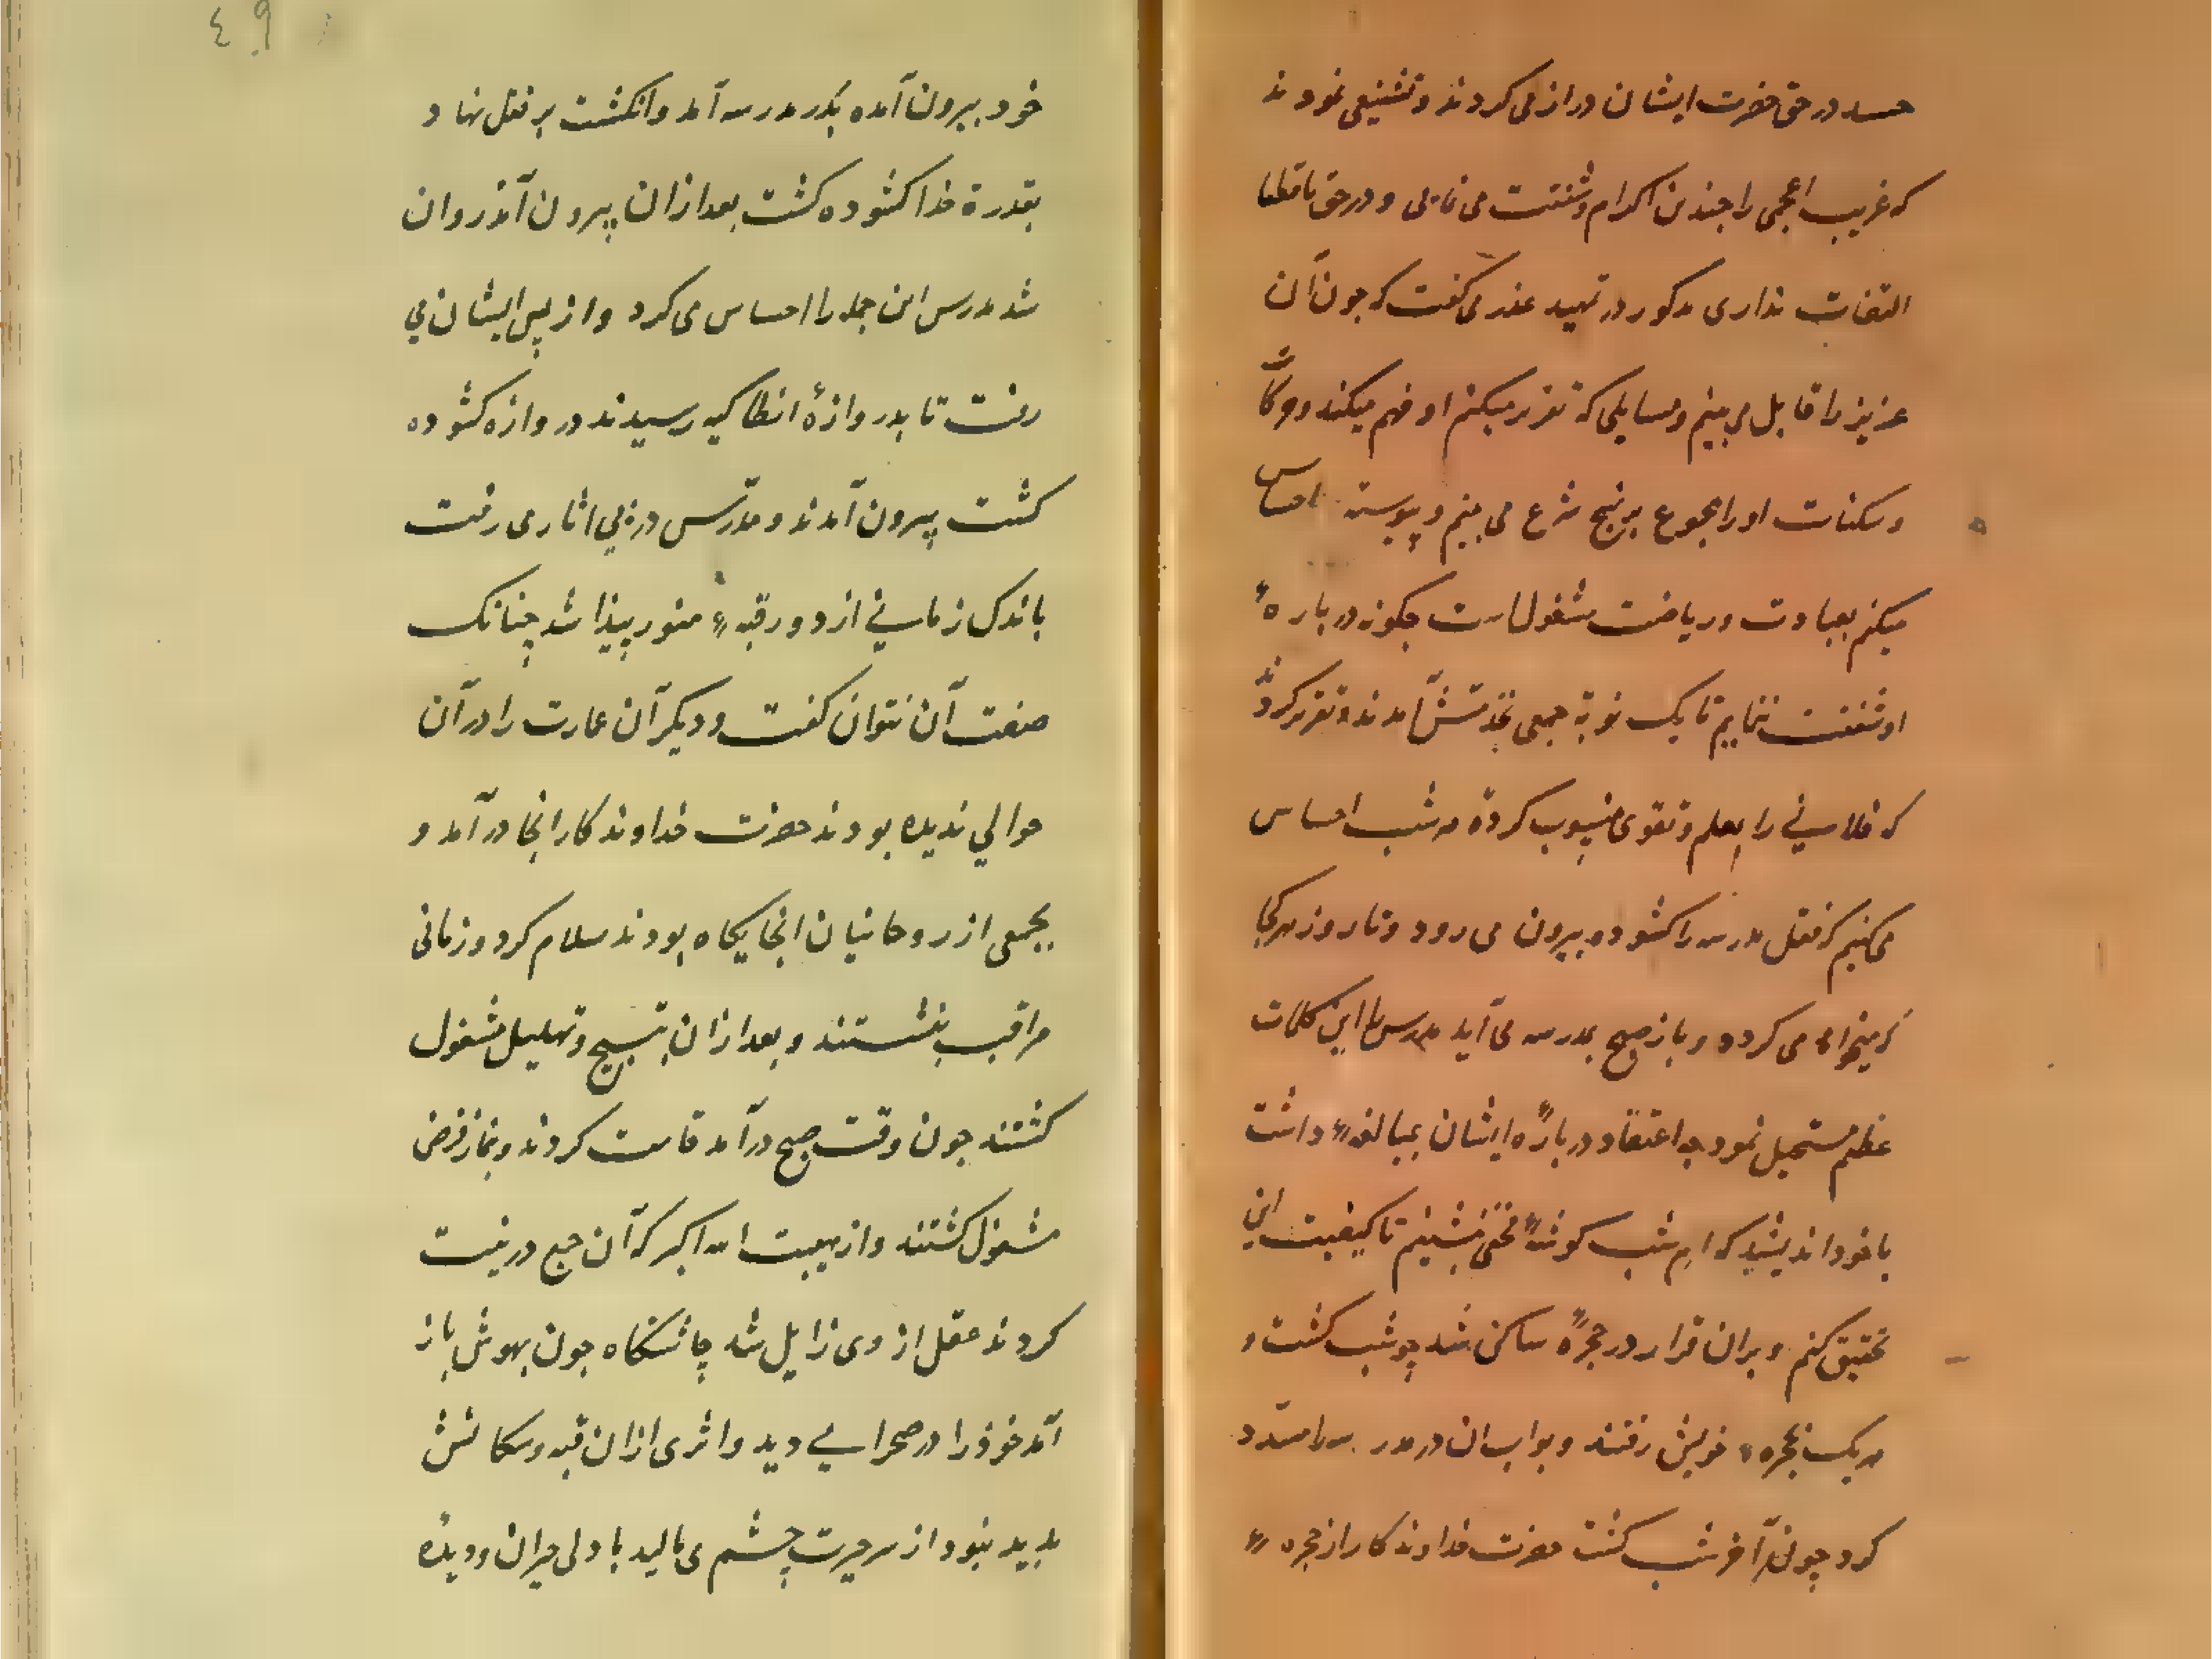 حسد در حق حضرت ایشان دراز می کردند و تشنیعی نمودند
که غریب اعجمی را جندین اکرام و شفقت می نمایی و در حق ما قطعا
التفات نداری مذکور در تمهید عذر می کفت که جون آن
عزیز را قابل می بینم و مسایلی که تقریر میکنم او فهم میکند و حرکات
و سکنات او را مجموع بر نهج شرع می بینم و پیوسته احساس
میکنم بعبادت و ریاضت مشغول است جکونه در بارهٔ
او شفقت ننمایم تا یک نوبة جمعی بخدمتش آمدند و تقریر کردند
که فلانی را بعلم و تقوی منسوب کردهٔ هر شب احساس
می کنیم که قفل مدرسه را کشوده بیرون می رود و تا روز هر کجا
که میخواهد می کردد و باز صبح بمدرسه می آید مدرس را این کلمات
عظیم مستحیل نمود جه اعتقاد در بارهٔ ایشان بمبالغهٔ داشت
با خود اندیشید که ام شب کوشهٔ مخفی بنشینم تا کیفیت این
تحقیق کنم و بران قرار در حجرهٔ ساکن شد چو شب کشت و
هر یک بحجرهٔ خویش رفتند و بوابان در مدرسه را مسدود
کرد چون آخر شب کشت حضرت خداوندکار از حجرهٔ
٤٩
خود بیرون آمده بدر مدرسه آمد و انکشت بر قفل نهاد
بقدرة خدا کشوده کشت بعد ازان بیرون آمذ روان
شد مدرس این جمله را احساس می کرد و از پس ایشان می
رفت تا بدروازهٔ انطاکیه رسیدند دروازه کشوده
کشت بیرون آمدند و مدرّس در پی اثار می رفت
باندک زمانی از دور قبهٔ منور پیذا شد چنانک
صفت آن نتوان کفت و دیکر آن عمارت را در آن
حوالی ندیده بودند حضرت خداوندکار انجا در آمد و
بجمعی از روحانیان انجایکاه بودند سلام کرد و زمانی
مراقب بنشستند و بعد ازان بتسبیح و تهلیل مشغول
کشتند جون وقت صبح در آمد قامت کردند و بنماز فرض
مشغول کشتند و از هیبت الله اکبر که آن جمع در نیت
کردند عقل از وی زایل شد چاشتکاه جون بهوش باز
آمد خوذ را در صحرایی دید و اثری ازان قبه و سکانش
بدید نبود از سر حیرت چشم می مالید با دلی حیران و دیدهٔ